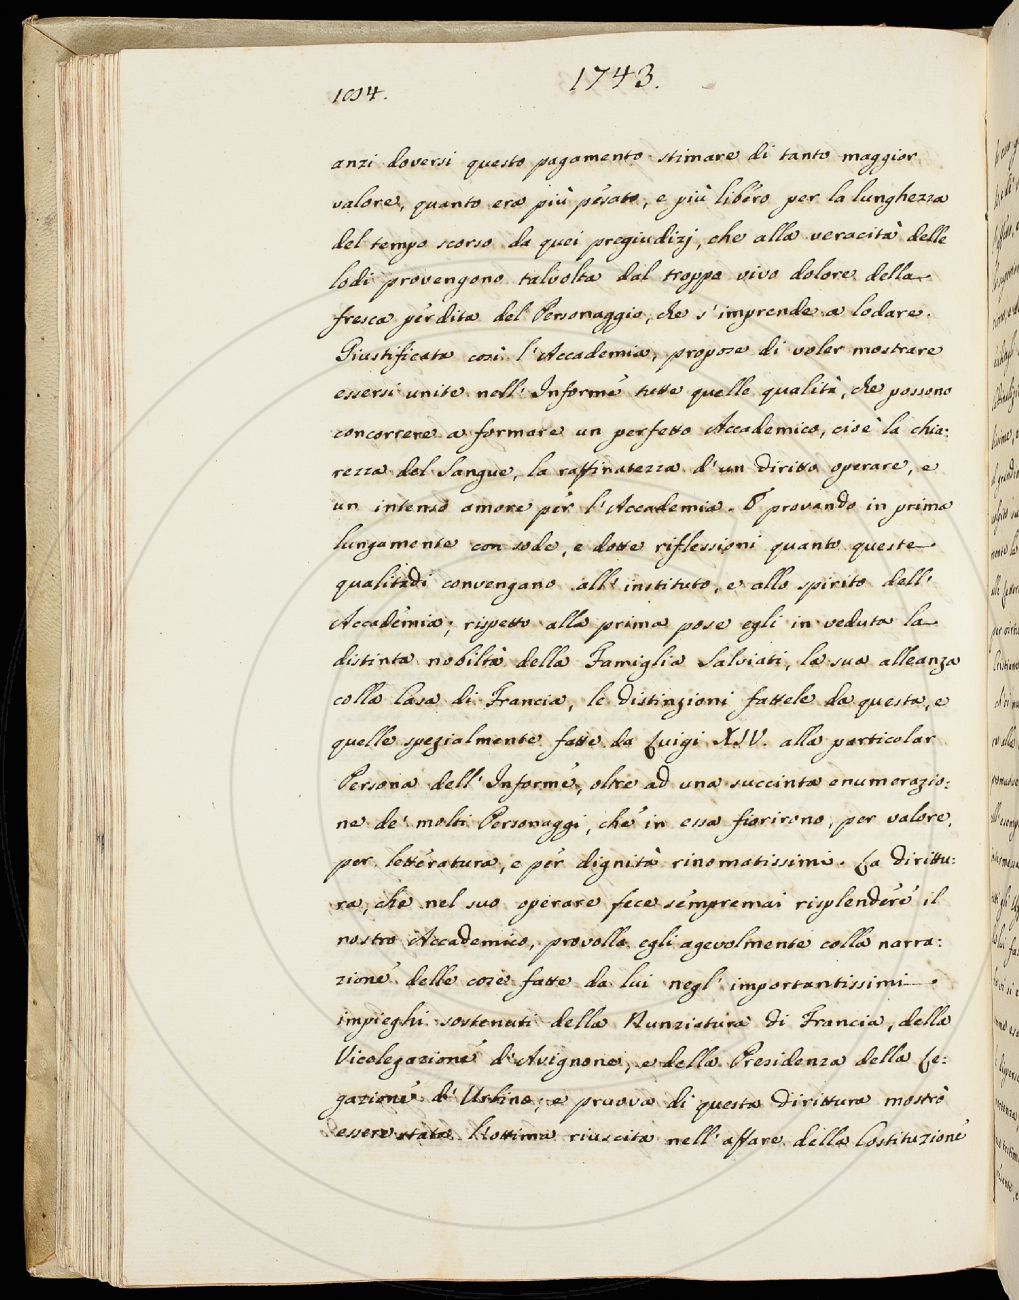 1743.
1014.
anzi doversi questo pagamento stimare di tanto maggior
valore, quanto era più pesato, e più libero per la lunghezza
del tempo scorso da quei pregiudizj, che alla veracità delle
lodi provengono talvolta dal troppo vivo dolore della
fresca perdita del Personaggio, che s'imprende a lodare.
Giustificata così l'Accademia, propose di voler mostrare
essersi unite nell'Informe tutte quelle qualità, che possono
concorrere a formare un perfetto Accademico, cioè la chia:
rezza del Sangue, la raffinatezza d'un diritto operare, e
un intenso amore per l'Accademia. E provando in prima
lungamente con sode, e dotte riflessioni quanto queste
qualitadi convengano all'instituto, e allo spirito dell'
Accademia; rispetto alla prima pose egli in veduta la
distinta nobiltà della Famiglia Salviati, la sua alleanza
colla Casa di Francia, le distinzioni fattele da questa, e
quelle spezialmente fatte da Luigi XIV. alla particolar
Persona dell'Informe, oltre ad una succinta enumerazio:
ne de' molti Personaggi, che in essa fiorirono, per valore,
per letteratura, e per dignità rinomatissimi. La dirittu:
ra, che nel suo operare fece sempremai risplendere il
nostro Accademico, provolla egli agevolmente colla narra:
zione delle cose fatte da lui negl'importantissimi
impieghi sostenuti della Nunziatura di Francia, della
Vicelegazione d'Avignone, e della Presidenza della Le:
gazione d'Urbino; e pruova di questa dirittura mostrò
essere stata l'ottima riuscita nell'affare della Costituzione